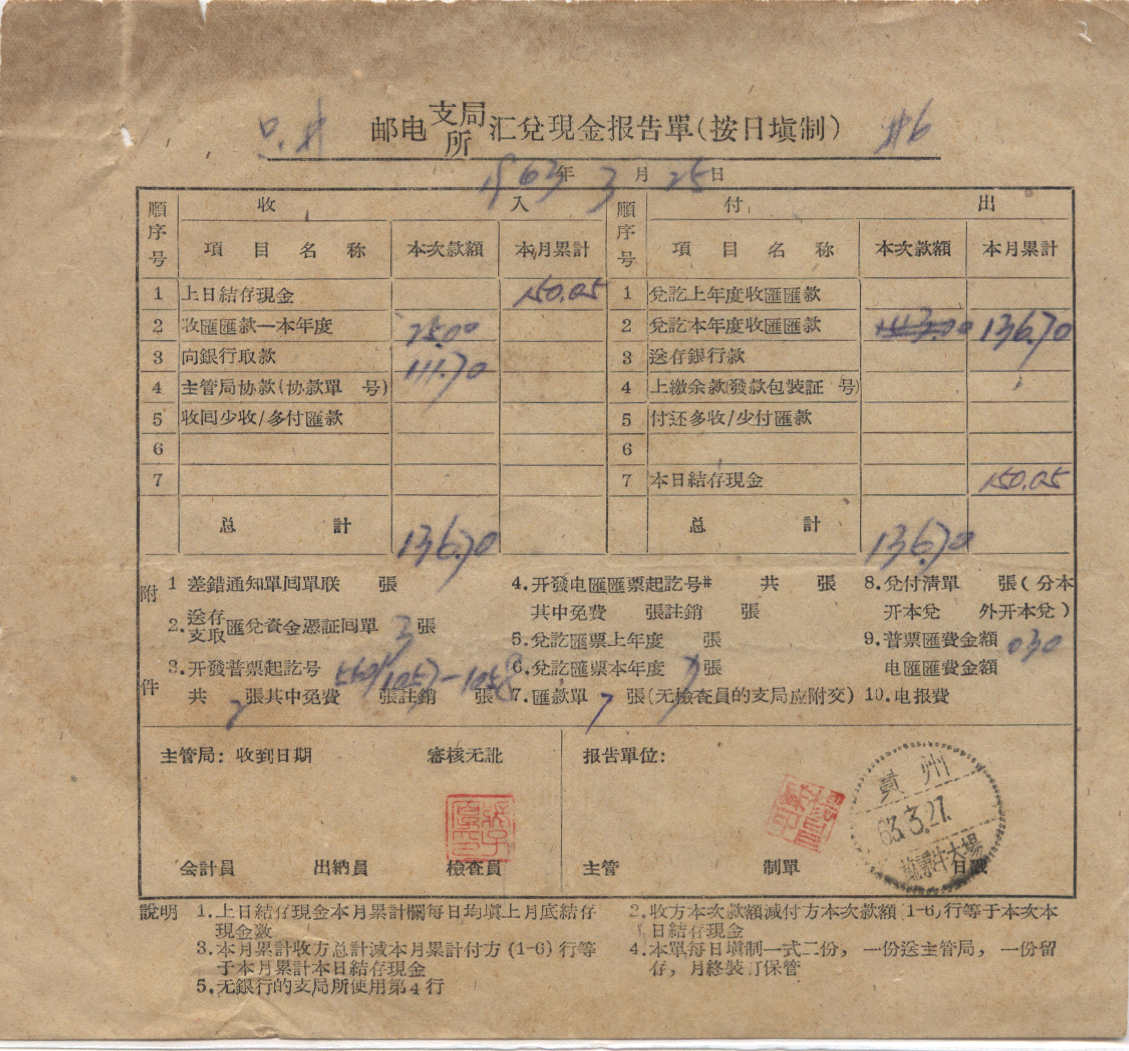 邮电支局所汇兌現金报告單(按日塡制) #6
1963年3月25日
順序号 收入 順序号 付出
項目名称 本次款額 本月累計 項目名称 本次款額 本月累計
1 上日結存現金 150.05 1 兌訖上年度收匯匯款
2 收匯匯款—本年度 25.00 2 兌訖本年度收匯匯款 136.70
3 向銀行取款 111.70 3 送存銀行款
4 主管局协款(协款單 号) 4 上繳余款(發款包裝証 号)
5 收囘少收/多付匯款 5 付还多收/少付匯款
6 6
7 7 本日結存現金 150.05
总計 136.70 总計 136.70
附件
1 差錯通知單囘單联 張 4.开發电匯匯票起訖号# 共 張 8.兌付清單 張(分本
其中免費 張註銷 張 开本兌 外开本兌)
2.送存支取匯兌資金憑証囘單 3 張 5.兌訖匯票上年度 張 9.普票匯費金額 030
3.开發普票起訖号 1057-1058 6.兌訖匯票本年度 張 电匯匯費金額
共 張其中免費 張註銷 張 7.匯款單 張(无檢查員的支局应附交) 10.电报費
主管局:收到日期 審核无訛 报告單位:
黄州
63.3.27.
会計員 出納員 檢查員 主管 制單 日戳
說明 1.上日結存現金本月累計欄每日均塡上月底結存
現金数
2.收方本次款額减付方本次款額(1-6)行等于本次本
日結存現金
3.本月累計收方总計减本月累計付方(1-6)行等
于本月累計本日結存現金
4.本單每日塡制一式二份，一份送主管局，一份留
存，月終裝訂保管
5.无銀行的支局所使用第4行